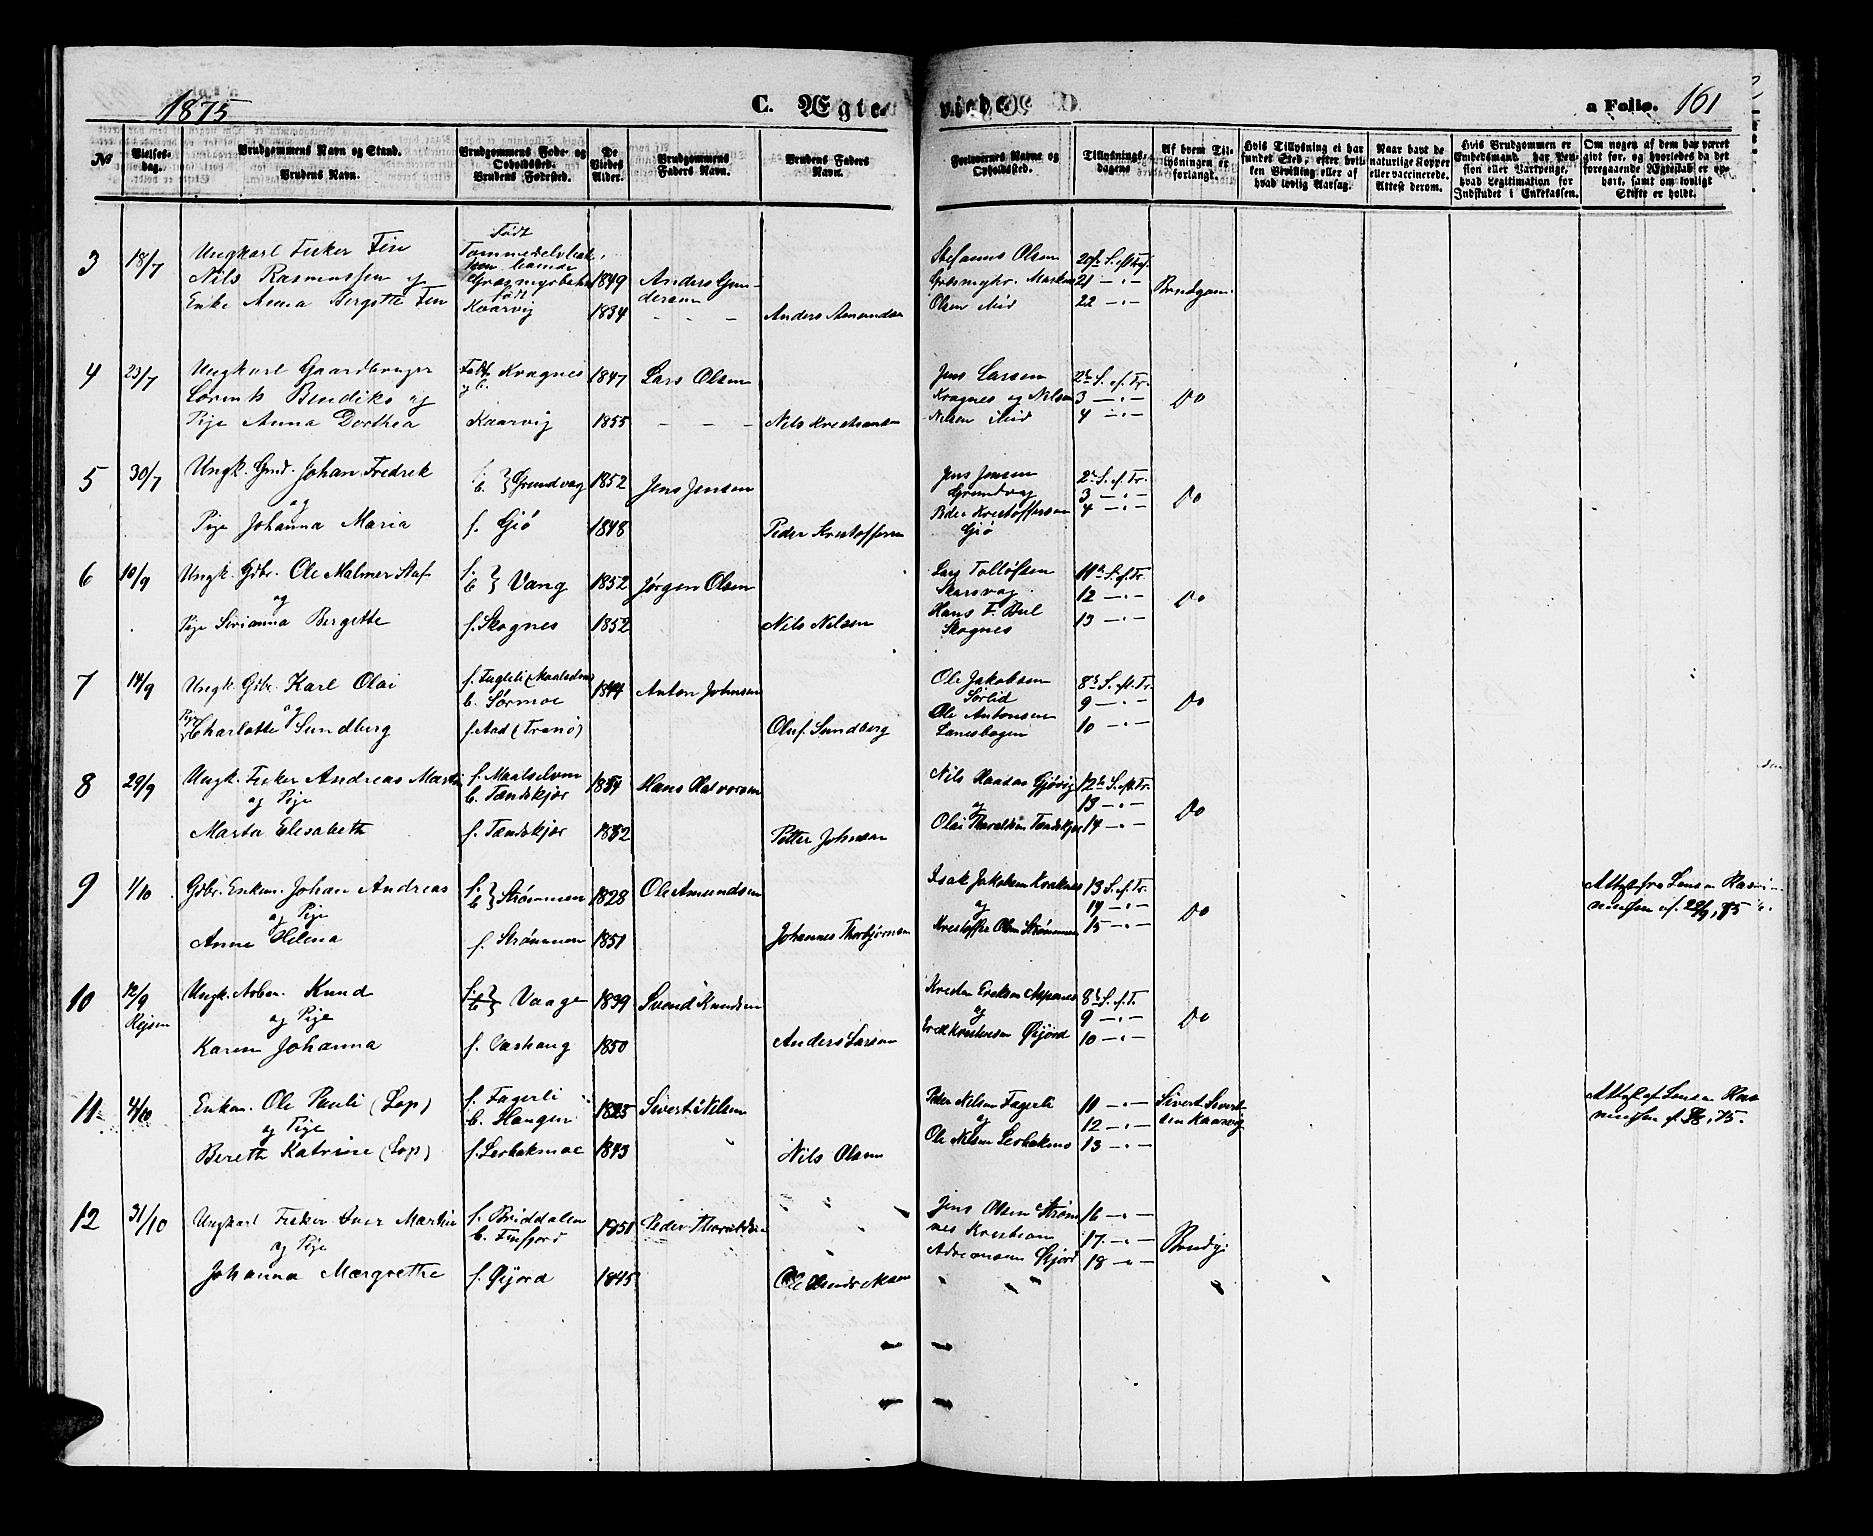 1875
C. Ægte
viede
a Folio. 161
№
Vielses-
dag.
Brudgommens Navn og Stand.
Brudens Navn.
Brudgommens Føde- og
Opholdssted.
Brudens Fødested.
De
Viedes
Alder.
Brudgommens
Faders Navn.
Brudens Faders
Navn.
Forlovernes Navne og
Opholdssted.
Tillysnings-
dagene
Af hvem Til-
lysningen er
forlangt.
Hvis Tillysning ei har
fundet Sted, efter hvil-
ken Bevilling eller af
hvad lovlig Aarsag.
Naar havt de
naturlige Kopper
eller vaccinerede.
Attest derom.
Hvis Brudgommen er
Embedsmand, har Pen-
sion eller Vartpenge,
hvad Legitimation for
Indskudet i Enkekassen.
Om nogen af dem har været
gift før, og hvorledes da det
foregaaende Ægteskab er op-
hørt, samt om lovligt
Skifte er holdt.
3 18/7 Ungkarl Fisker Fin
Nils Rasmussen og
Enke Anna Bergitte Fin
Født
Født
Kaarvig
1849
1834
Anders Gun-
dersen
— — —
Anders Amundsen
Stefanus Olsen
Græsmyhr. Markus
Olsen Mid
20de S. eft Tref.
21 — " —
22 — " —
Brudgom.
4 23/7 Ungkarl Gaardbruger
Lorents Bendiks og
Pige Anna Dorthea
Født Kragnes
og b.
Kaarvig
1847
1855
Lars Olsen
— — —
Nils Kristiansen
Jens Larsen
Kragnes og Nils
Nilsen Mid
2de S. ef. Tr.
3 — " —
4 — " —
Do
5 30/7 Ungk. Gmd. Johan Fredrik
og
Pige Johanna Maria
f.
b. } Grundvag
f. Gjø
1852
1848
Jens Jensen
Peder Kristoffersen
Jens Jensen
Grundvag
Peder Kristoffersen
Gjø
2de S. ef. Tr.
3 — " —
4 — " —
Do
6 10/9 Ungk. Gdbr. Ole Malmer Staf
og
Pige Sirianna Bergitte
f.
b. } Vang
f. Skognes
1852
1852
Jørgen Olsen
Nils Nilsen
Lars Tollefsen
Skarsvag
Hans F.
Skognes
11te S. ef. Tr.
12 — " —
13 — " —
Do
7 14/9 Ungk. Gdbr. Karl Olai
og
Pige Charlotte Sundberg
f. Fugleli (Maalselven)
b. Sørmoe
f. Aad (Tranø)
1844
Anton Johnsen
Oluf Sundberg
Ole Jakobsen
Sørlid
Ole Antonsen
Lanesbogen
8de S. eft. Tr.
9 — " —
10 — " —
Do
8 29/9 Ungk. Fisker Andreas Martin
og Pige
Marta Elisabeth
f. Maalselven
b. Tændskjær
f. Tændskjær
1852
Hans Halvorsen
Petter Johnsen
Nils Hansen Gjøvig
og
Olai Thoralsen Tændskjær
12te S. eft Tr.
13 — " —
14 — " —
Do
9 1/10 Gdbr. Enkem. Johan Andreas
og Pige
Anne Helena
f.
b. } Strømmen
f. Strømmen
1828
1851
Ole Amundsen
Johannes Thorbjørnsen
Isak Jakobsen Kraknes
og
Kristoffer Olsen Strømmen
13 S. ef. Tr.
14 — " —
15 — " —
Do
Attest fra Lensm Ras-
mussen af 22/9, 75
10 12/9
Rejsen
Ungk. Arben. Knud
og Pige
Karen Johanna
f.
b. } Vaage
f. Vashaug
1839
1850
Svend Knudsen
Anders Larsen
Kristen Eriksen Aspenes
og
Erik Kristensen Øijord
8de S. ef. T.
9 — " —
10 — " —
Do
11 4/10 Enkem. Ole Pauli (Lap)
og Pige
Bereth Katrine (Lap)
f. Fagerli
b. Hangen
f. Lerbakmoe
1825
1843
Sivert Nilsen
Nils Olsen
Peder Nilsen Fagerli
og
Ole Nilsen Lerbakmo
11 — " —
12 — " —
13 — " —
Sivert Sivert-
sen Kaarvig
Attest af Lensm Ras-
mussen
12 31/10 Ungkarl Fisker Iver Martin
og Pige
Johanna Margrethe
f. Briddalen
b. Finfjord
f. Øijord
1851
1845
Peder Thoraldsen
Ole Hendriksen
Jens Olsen Strøm
nes Kristian
Adriansen Øijord
16 — " —
17 — " —
18 — " —
Brudg.